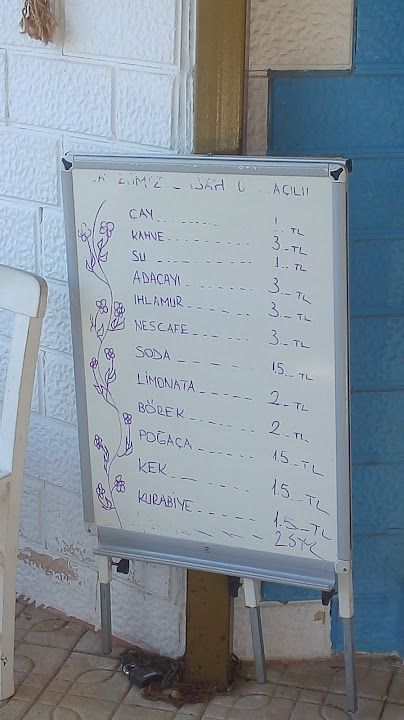 AÇILII
ÇAY 1.. TL
KAHVE 3.. TL
SU 1.. TL
ADAÇAYI 3.. TL
IHLAMUR 3.. TL
NESCAFE 3.. TL
SODA 1.5.. TL
LİMONATA 2.. TL
BÖREK 2.. TL
POĞAÇA 1.5.. TL
KEK 1.5.. TL
KURABİYE 1.5.. TL